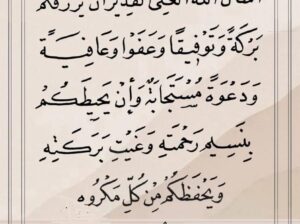 الله العلي القدير أن يرزقكم
بَرَكَةً وَتَوْفِيقًا وَعَفْوًا وَعَافِيَةً
وَدَعْوَةً مُسْتَجَابَةً وَأَنْ يُحِيطَكُمْ
بِنَسِيمِ رَحْمَتِهِ وَغَيْثِ بَرَكَتِهِ
وَيَحْفَظَكُمْ مِنْ كُلِّ مَكْرُوهٍ